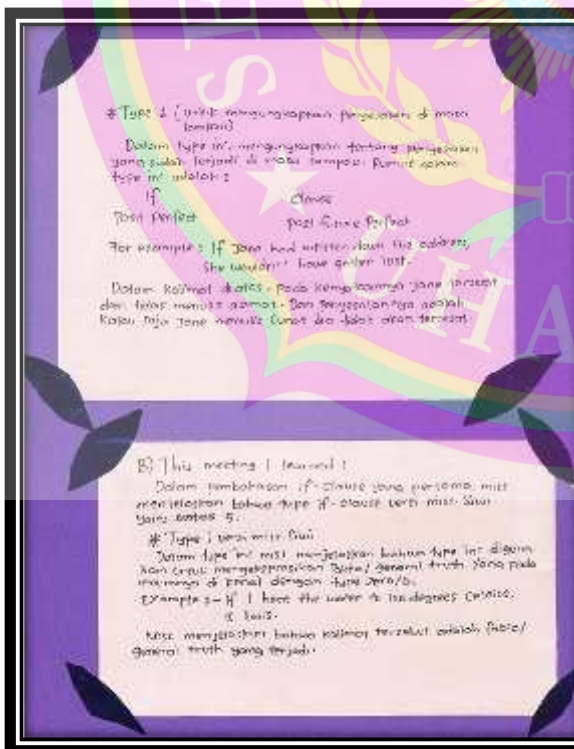 # Type (untuk mengungkapkan penyesalan di masa
lampau)
Dalam type ini, mengungkapkan tentang penyesalan
yang sudah terjadi di masa lampau. Rumus dalam
type ini adalah :
If Clause
Past Perfect Past Future Perfect
For example : If Jane had written down the address,
She wouldn't have gotten lost.
Dalam kalimat diatas, pada Jane tersesat
dan tidak menulis alamat. Dan penyesalannya adalah
Kalau saja Jane menulis dia tidak akan tersesat.
B) This meeting I learned :
Dalam pembahasan if-clause yang pertama, miss
menjelaskan bahwa type if-clause versi miss
yaitu 5.
# Type 1 versi miss
Dalam type ini miss menjelaskan bahwa type ini diguna
kan untuk mengekspresikan general truth yang pada
umumnya di kenal dengan type zero/0.
Example :- If I heat the water to 100 degrees Celsius,
it boils.
Miss menjelaskan bahwa kalimat tersebut adalah
general truth yang terjadi.
UHA